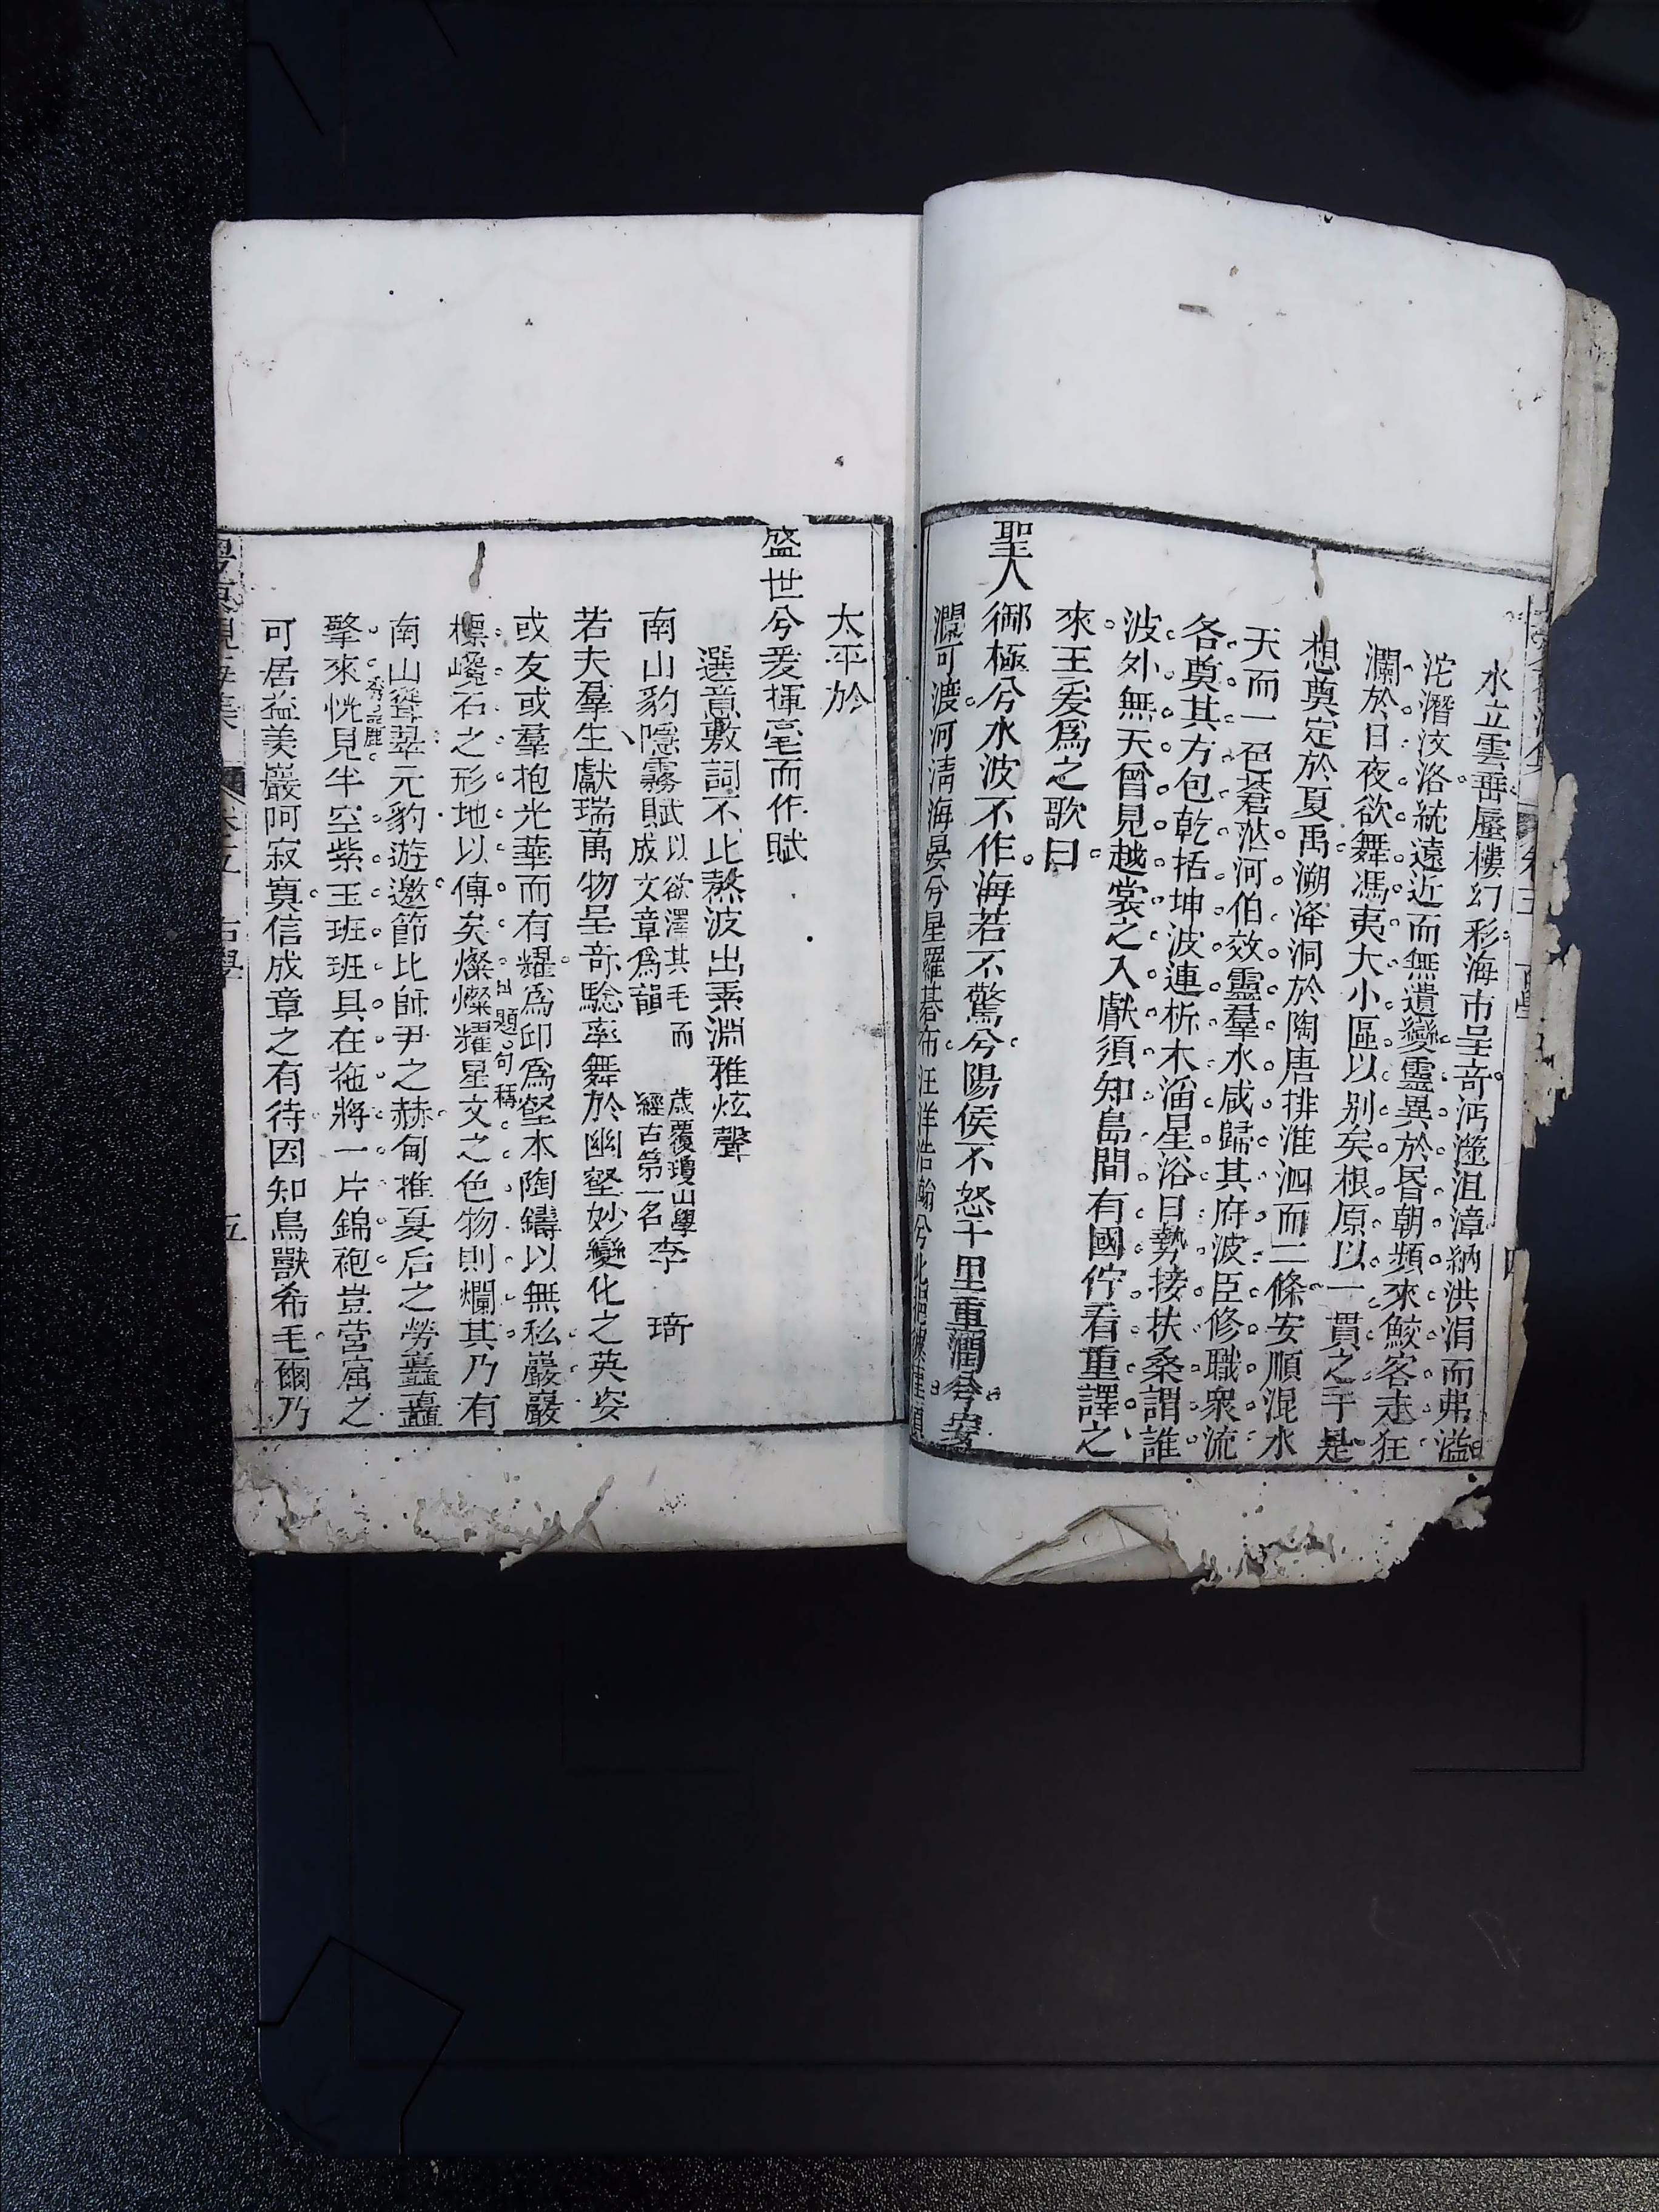 水立雲垂蜃樓幻彩海市呈奇沔滋沮漳納洪涓而弗溢
沱潛汶洛統遠近而無遺變靈異於昏朝頻來鮫客走狂
瀾於日夜欲舞馮夷大小區以別矣根原以一貫之于是
想奠定於夏禹溯洚洞於陶唐排淮泗而二條安順混水
天而一色蒼茫河伯效靈羣水咸歸其府波臣修職衆流
各奠其方包乾括坤波連析木湓星浴日勢接扶桑謂誰
波外無天曾見越裳之入獻須知島間有國佇看重譯之
來王爰爲之歌曰
聖人御極兮水波不作海若不驚兮陽侯不怒千里重潤兮安
瀾可渡河淸海晏兮星羅碁布汪洋浩瀚兮
太平於
盛世兮爰揮毫而作賦
選意敷詞不比熬波出素淵雅炫聲
南山豹隱霧賦以欲澤其毛而成文章爲韻 歲覆瓊山學經古第一名李 琦
若夫羣生獻瑞萬物呈奇騐率舞於幽壑妙變化之英姿
或友或羣抱光華而有耀爲卭爲蛩本陶鑄以無私巖巖
標巉石之形地以傳矣燦燦耀星文之色物則爛其乃有
出題句稱
南山聳翠元豹遊遨節比師尹之赫甸推夏后之勞矗矗
擎來恍見半空紫玉班班具在拖將一片錦袍豈營窟之
秀麗
可居益美巖阿寂寞信成章之有待因知鳥獸希毛爾乃
卷五
古學
五